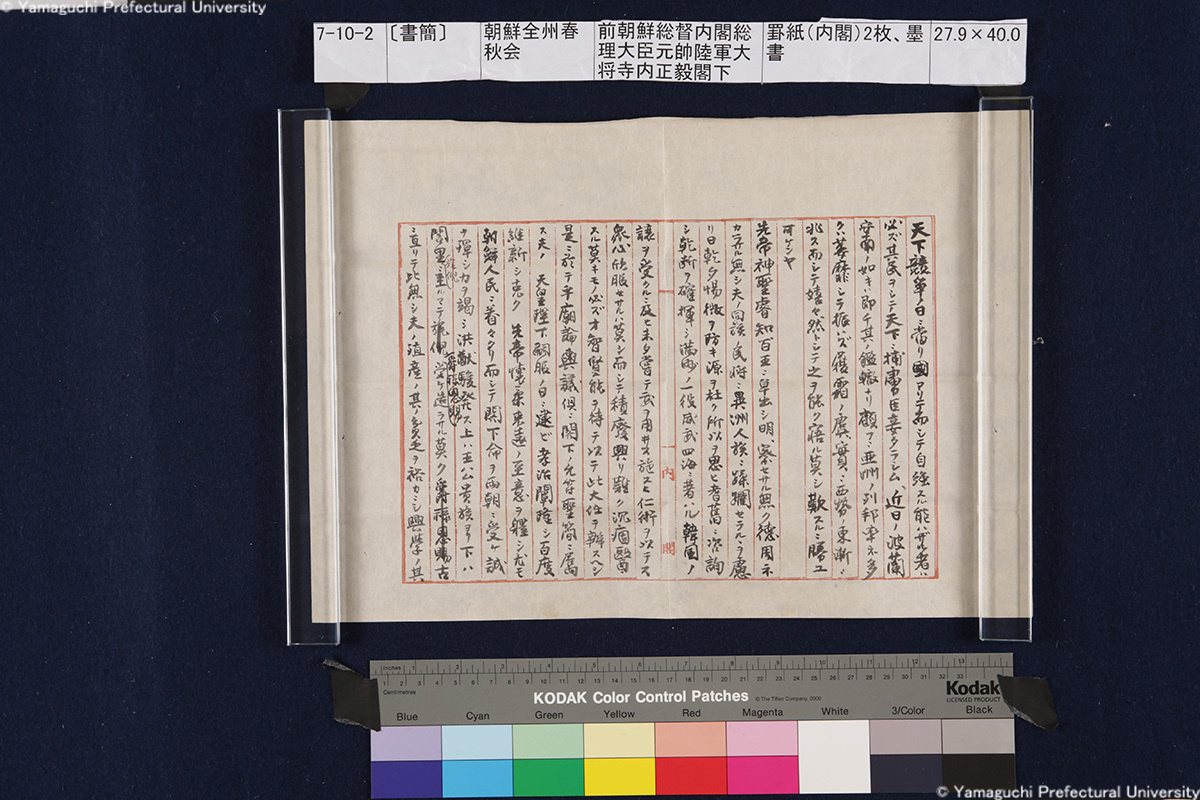 © Yamaguchi Prefectural University
7-10-2
〔書簡〕
朝鮮全州春
秋会
前朝鮮総督内閣総
理大臣元帥陸軍大
将寺内正毅閣下
罫紙(内閣)2枚、墨
書
27.9×40.0
天下競争ノ日ニ當リ國アリテ而シテ自強スル能ハザル者ハ
必ズ其民ヲシテ天下ニ捕虜臣妾タラシム、近日ノ波蘭
安南ノ如キ即チ其ノ鑑轍ナリ顧フニ亜洲ノ列邦率ネ多
ク萎靡シテ振ハズ履霜ノ虞實ニ西勢ノ東漸ニ
兆ス而シテ嬉々然トシテ之ヲ能ク寤ル莫シ歎スルニ勝ユ
可ケンヤ
先帝神聖睿知百王ニ卓出シ明、察セサル無ク徳周ネ
カラサル無シ夫ノ同族ノ民将ニ異洲人族ニ蹂躙セラルヲ慮
リ日乾夕惕微ヲ防キ源ヲ杜ク所以ヲ思ヒ耆舊ニ咨詢
シ乾断ヲ確揮シ満州ノ一役威武四海ニ著ハル韓国ノ
内閣
譲ヲ受クルニ及ヒ未タ嘗テ武ヲ用井ス施スニ仁術ヲ以テス
衆心欣服セサル莫シ而シテ積廢興リ難ク沉痼醫
スル莫キモノ必ズオ智賢能ヲ待テ以テ此大任ヲ辨スヘシ
是ニ於テ半廟論輿議倶ニ閣下ノ允符聖簡ニ属
ス夫ノ 天皇陛下嗣服ノ日ニ遝ビ孝治闡隆シ百度
維新シ克ク 先帝懐柔東遠ノ至意ヲ軆シ尤モ
朝鮮人民ニ着々タリ而シテ閣下命ヲ両朝ニ受ケ誠
ヲ殫シカヲ竭シ洪猷駿発ス上ハ王公貴族ヨリ下ハ
閭里ニ至ルマテ
ニ亘リテ此無シ夫ノ殖産ノ其ノ貧乏ヲ裕カニシ興學ノ其
Inches
Centimetres
KODAK Color Control Patches
© The Tiffen Company, 2000
Kodak
LICENSED PRODUCT
Blue
Cyan
Green
Yellow
Red
Magenta
White
3/Color
Black
© Yamaguchi Prefectural University